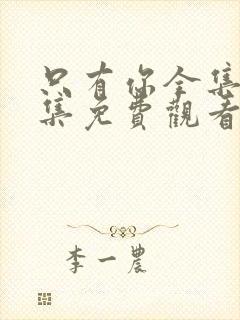 只有你全集
集免費觀看
李一農